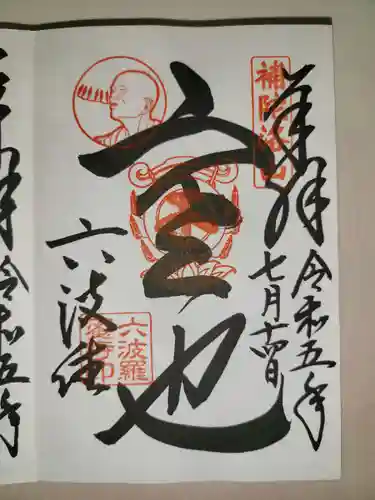 奉拝
令和五年
七月十四日
補陀洛山
空也
六波羅蜜寺印
六波佳